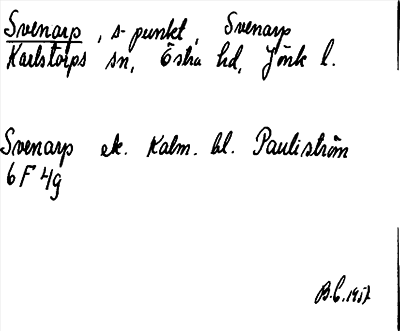 Svenarp, s-punkt, Svenarp
Karlstorps sn, Östra hd, Jönk l.
Svenarp ek. Kalm. bl. Pauliström
6F 4g
B.C. 1957